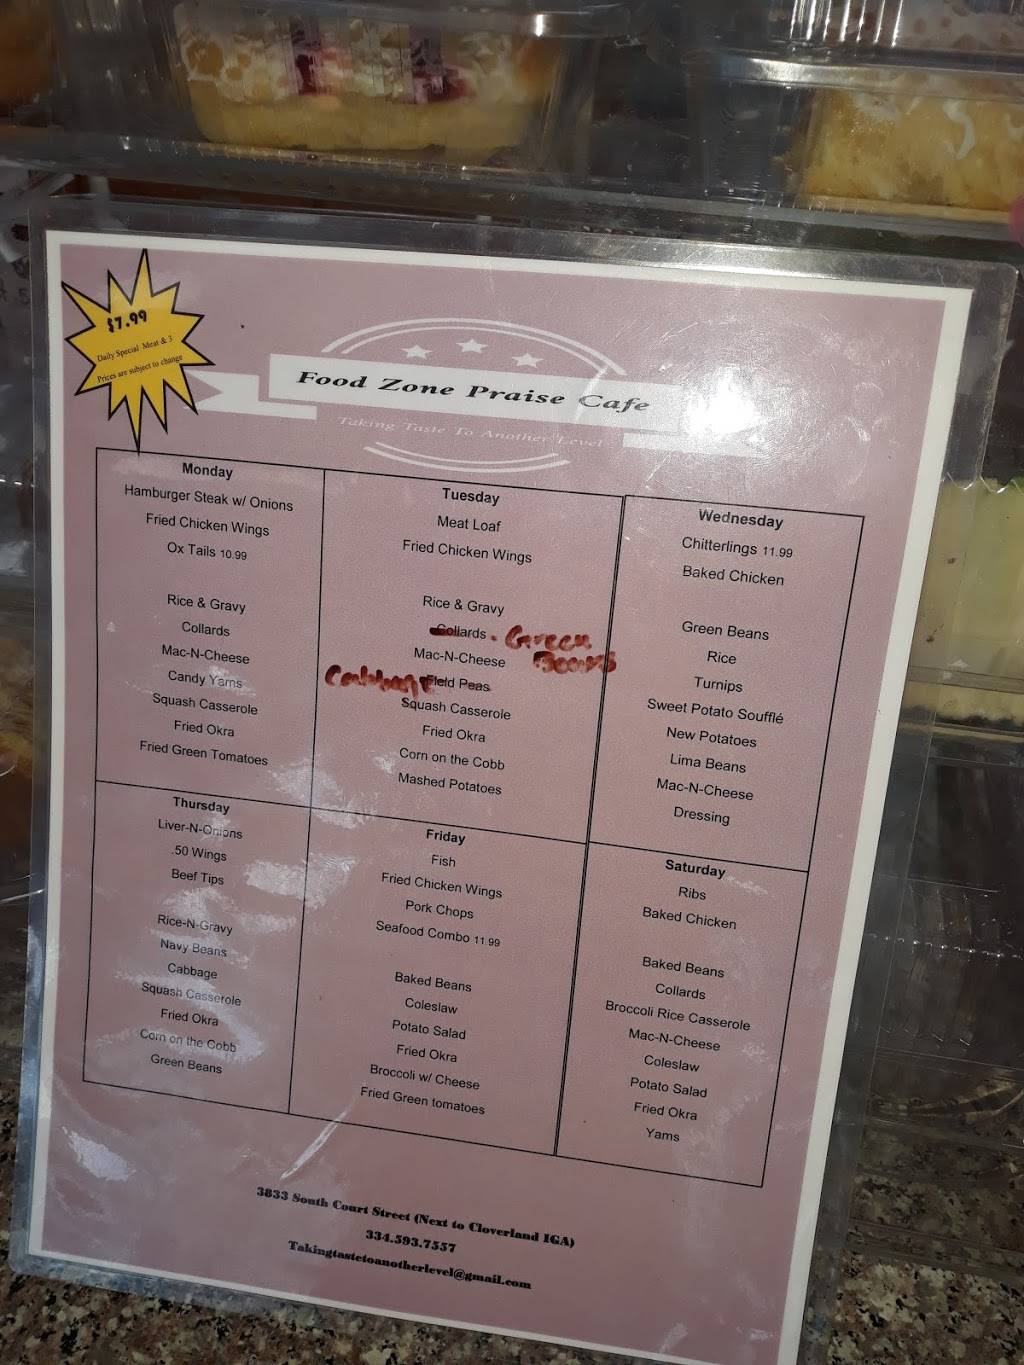 $7.99
Daily Special Meat & 3
Prices are subject to change
Food Zone Praise Cafe
Taking Taste To Another Level
Monday
Hamburger Steak w/ Onions
Fried Chicken Wings
Ox Tails 10.99
Rice & Gravy
Collards
Mac-N-Cheese
Candy Yams
Squash Casserole
Fried Okra
Fried Green Tomatoes
Tuesday
Meat Loaf
Fried Chicken Wings
Rice & Gravy
Collards - Green
Beans
Mac-N-Cheese
Cabbage Field Peas
Squash Casserole
Fried Okra
Corn on the Cobb
Mashed Potatoes
Wednesday
Chitterlings 11.99
Baked Chicken
Green Beans
Rice
Turnips
Sweet Potato Soufflé
New Potatoes
Lima Beans
Mac-N-Cheese
Dressing
Thursday
Liver-N-Onions
.50 Wings
Beef Tips
Rice-N-Gravy
Navy Beans
Cabbage
Squash Casserole
Fried Okra
Corn on the Cobb
Green Beans
Friday
Fish
Fried Chicken Wings
Pork Chops
Seafood Combo 11.99
Baked Beans
Coleslaw
Potato Salad
Fried Okra
Broccoli w/ Cheese
Fried Green tomatoes
Saturday
Ribs
Baked Chicken
Baked Beans
Collards
Broccoli Rice Casserole
Mac-N-Cheese
Coleslaw
Potato Salad
Fried Okra
Yams
3833 South Court Street (Next to Cloverland IGA)
334.593.7557
Takingtastetoanotherlevel@gmail.com